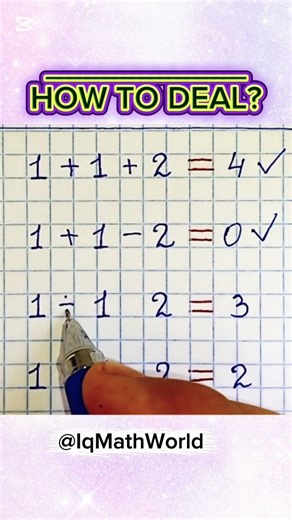 HOW TO DEAL?
1 + 1 + 2 = 4 ✓
1 + 1 - 2 = 0 ✓
1 ÷ 1 2 = 3
1 2 = 2
@IqMathWorld